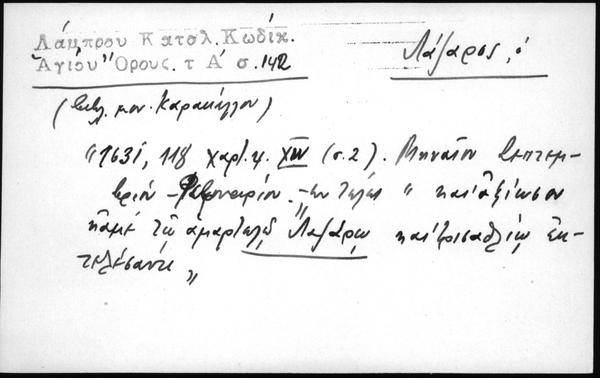 Λάμπρου Κατσλ. Κωδίκ.
Ἁγίου Ὄρους. τ Α΄ σ. 142
Λάζαρος, ὁ
(βιβλ. μον. Καρακάλλου)
"1631, 118 χαρτ. 4. XIV (σ.2). Μηναῖον Σεπτεμ-
βρίου - Φεβρουαρίου. - ἐν τέλει " καὶ ἀξίωσον
κἀμὲ τῷ ἁμαρτωλῷ Λαζάρῳ καὶ τρισαθλίῳ ἐκ-
τελέσαντι "